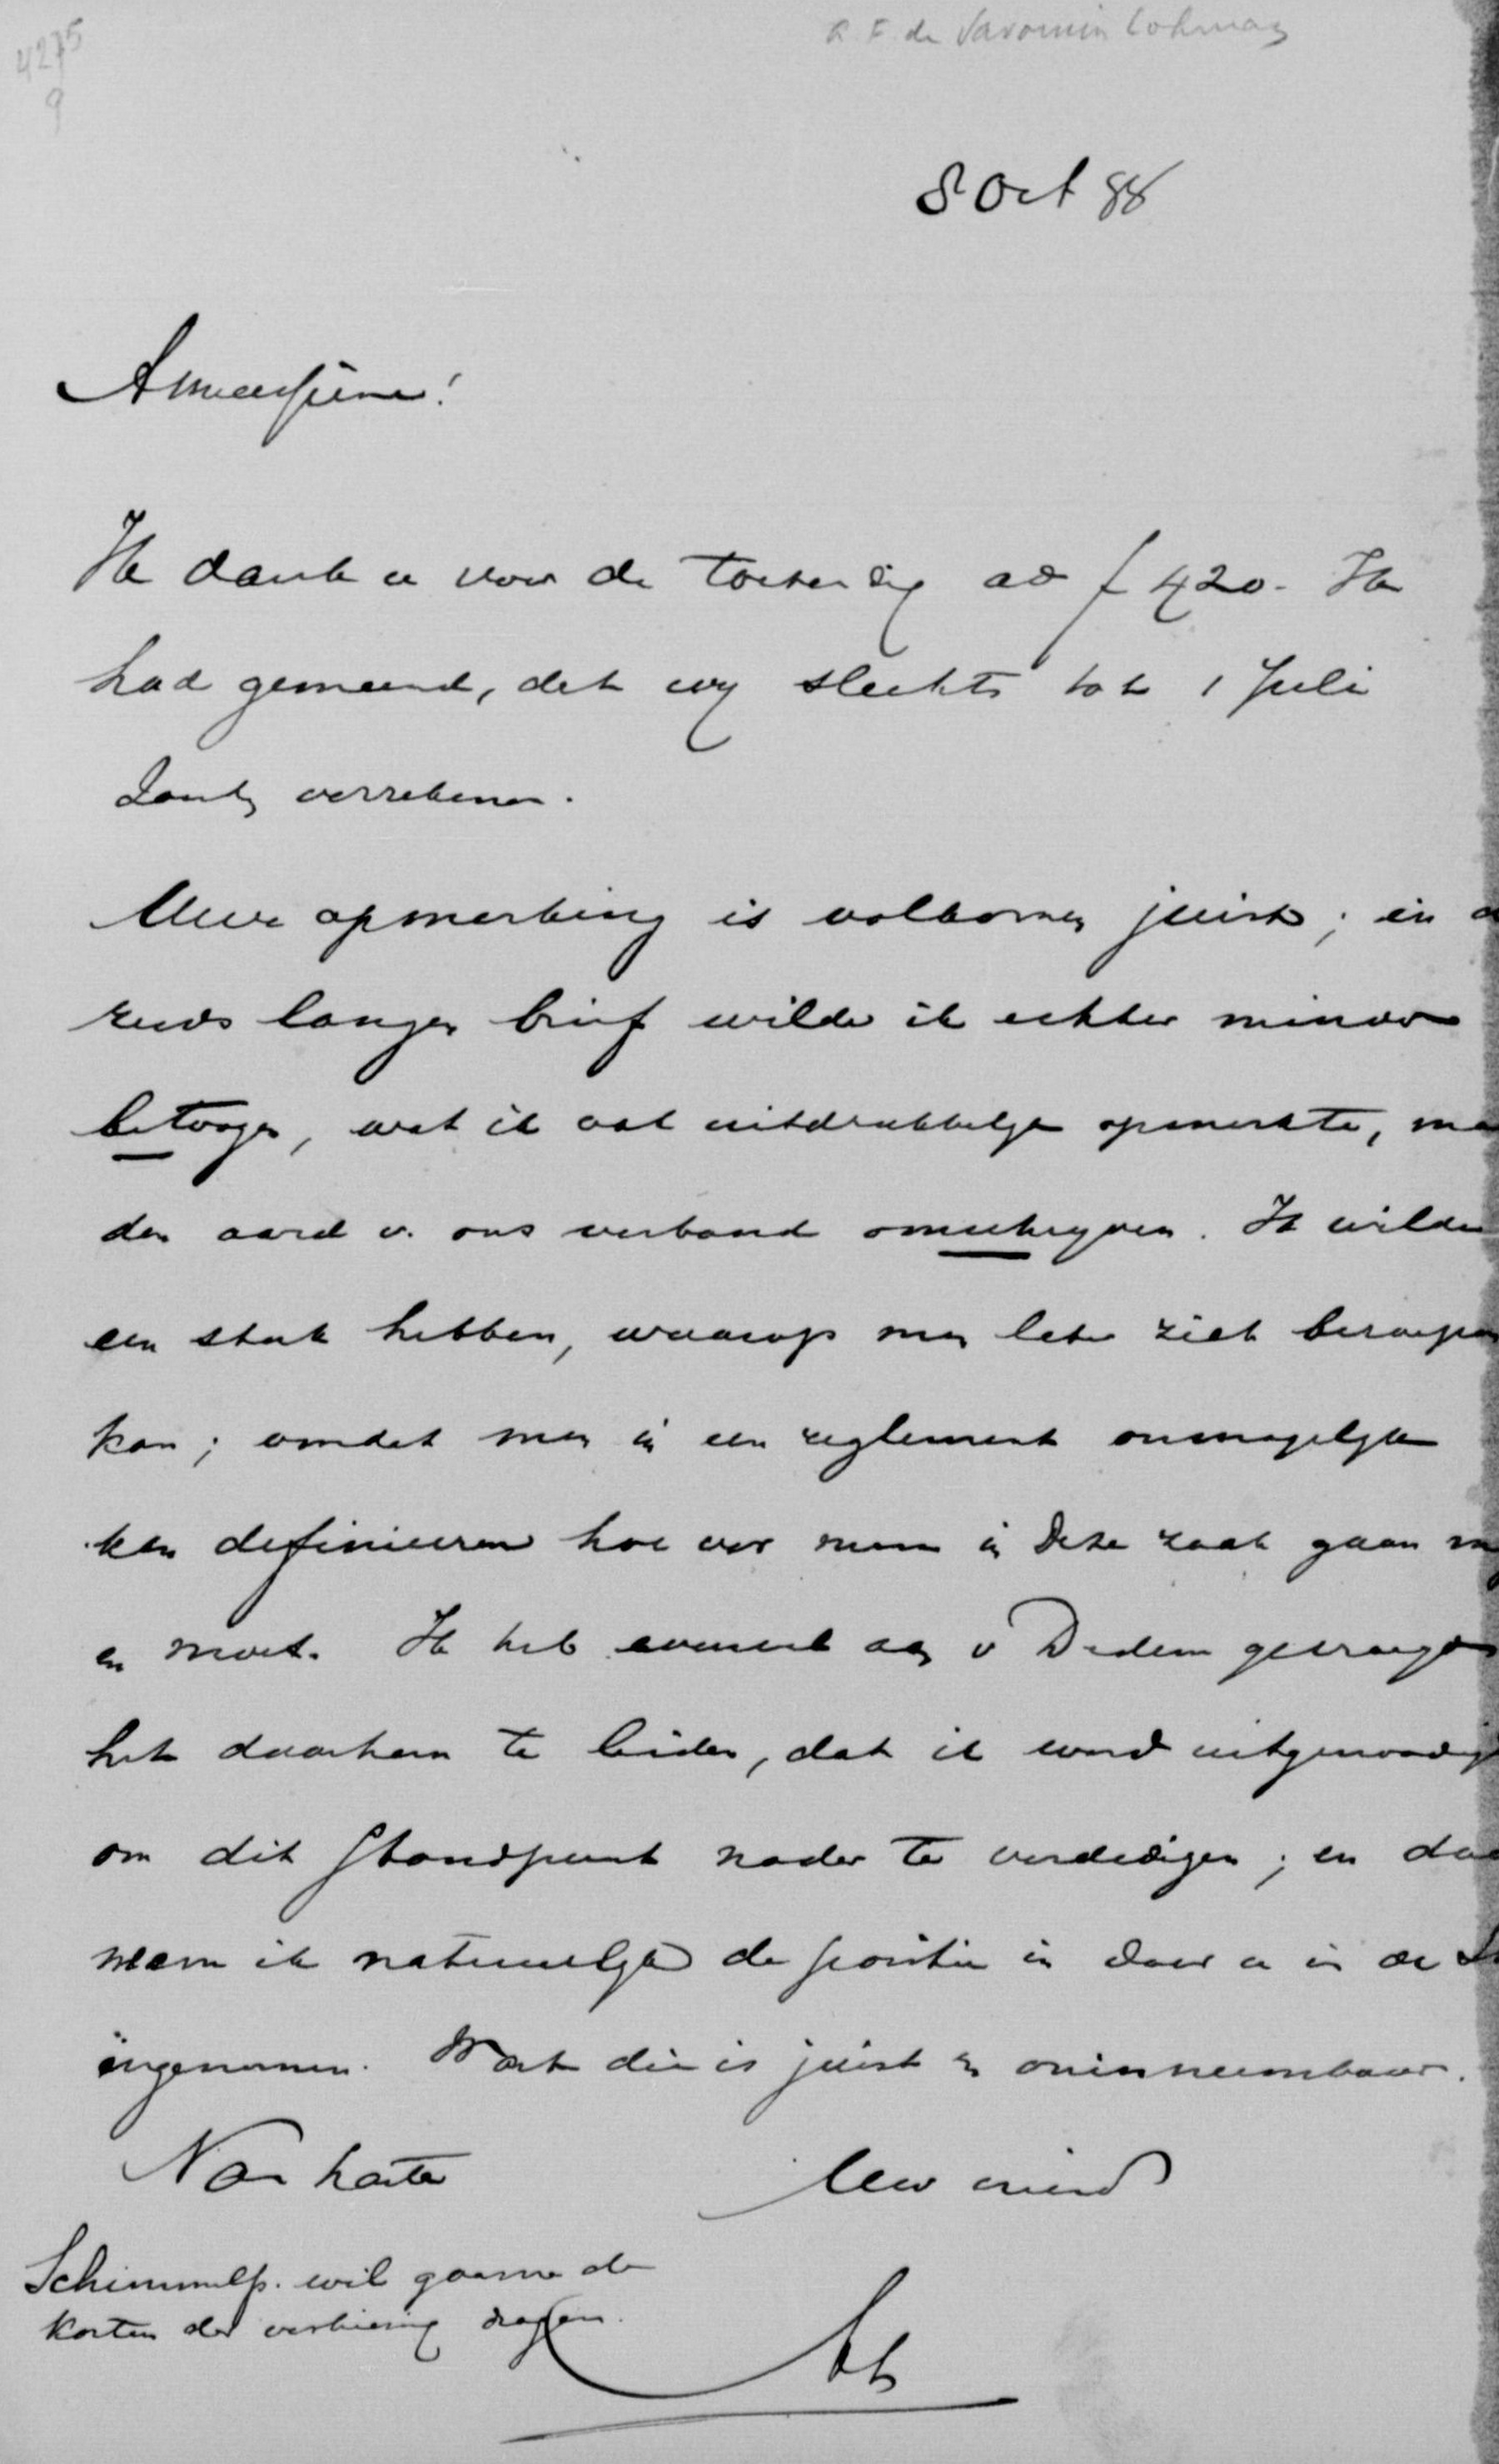 4275
9
A F de Savornin Lohman
8 Oct 88
Amicissime!
Ik dank u voor de toezending ad f 420.- Ik
had gemeend, dat wij slechts tot 1 Juli
verrekenen.
Uwe opmerking is volkomen juist; in
reeds langen brief wilde ik echter minder
betoogen, wat ik ook uitdrukkelijk opmerkte,
den aard v. ons verband omschrijven. Ik wilde
een stuk hebben, waarop men later zich beroepen
kan; omdat men in een reglement onmogelijk
kan definieeren hoe ver men in deze zaak gaan
en moet. Ik heb evenwel aan v Dedem gevraagd
het daarheen te leiden, dat ik word uitgenoodigd
om dit standpunt nader te verdedigen; en
neem ik natuurlijk de positie in door u in de
ingenomen. Want die is juist en oninneembaar.
Van harte
Uw vriend
Schimmelp. wil gaarne de
kosten der verkiezing dragen.